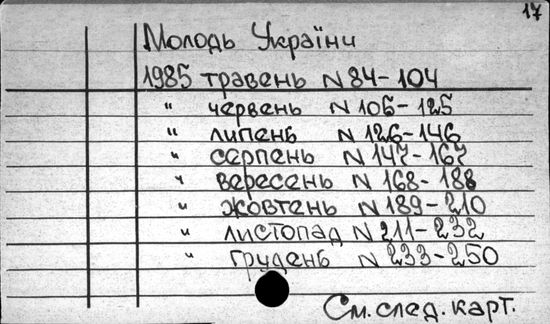 17
Молодь України
1985 травень N 84-104
" червень N 105-125
" липень N 126-146
" серпень N 147-167
" вересень N 168-188
" жовтень N 189-210
" листопад N 211-232
" грудень N 233-250
См. след. карт.